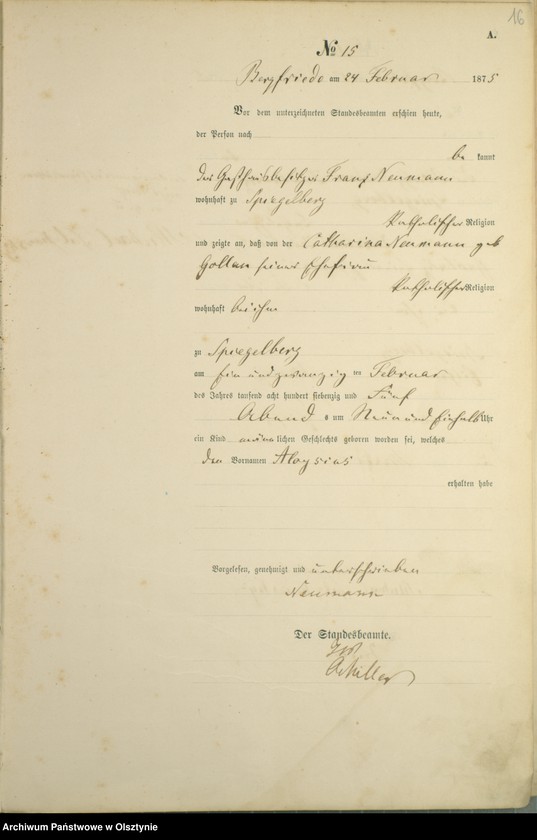 16
A.
№ 15
Bergfriede am 24 Februar 1875
Vor dem unterzeichneten Standesbeamten erschien heute,
der Person nach
be kannt
der Gasthausbesitzer Franz Neumann
wohnhaft zu Spiegelberg
katholischer Religion
und zeigte an, daß von der Catharina Neumann geb
Gollan seiner Ehefrau
katholischer Religion
wohnhaft bei ihm
zu Spiegelberg
am Ein und zwanzig ten Februar
des Jahres tausend acht hundert siebenzig und Fünf
Abend s um Neun und Einhalb Uhr
ein Kind männlichen Geschlechts geboren worden sei, welches
den Vornamen Aloysius
erhalten habe
Vorgelesen, genehmigt und unterschrieben
Neumann
Der Standesbeamte.